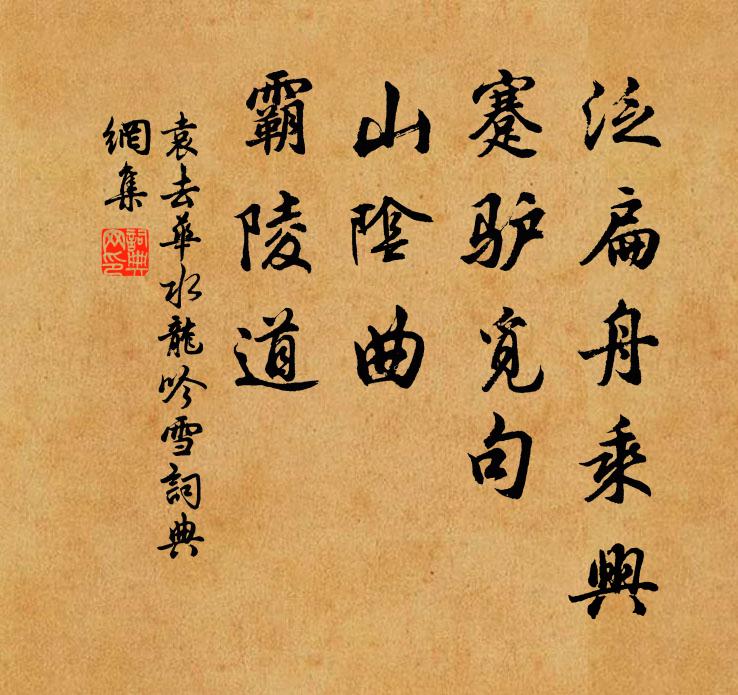 泛扁舟乘興
蹇驴觅句
山陰曲
霸陵道
袁去華水龍吟雪詞典
網集
詞典網印